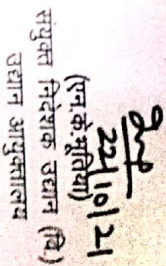 22/10/21
(एन.के.भूतिया)
संयुक्त निदेशक उद्यान (वि.)
उद्यान आयुक्तालय